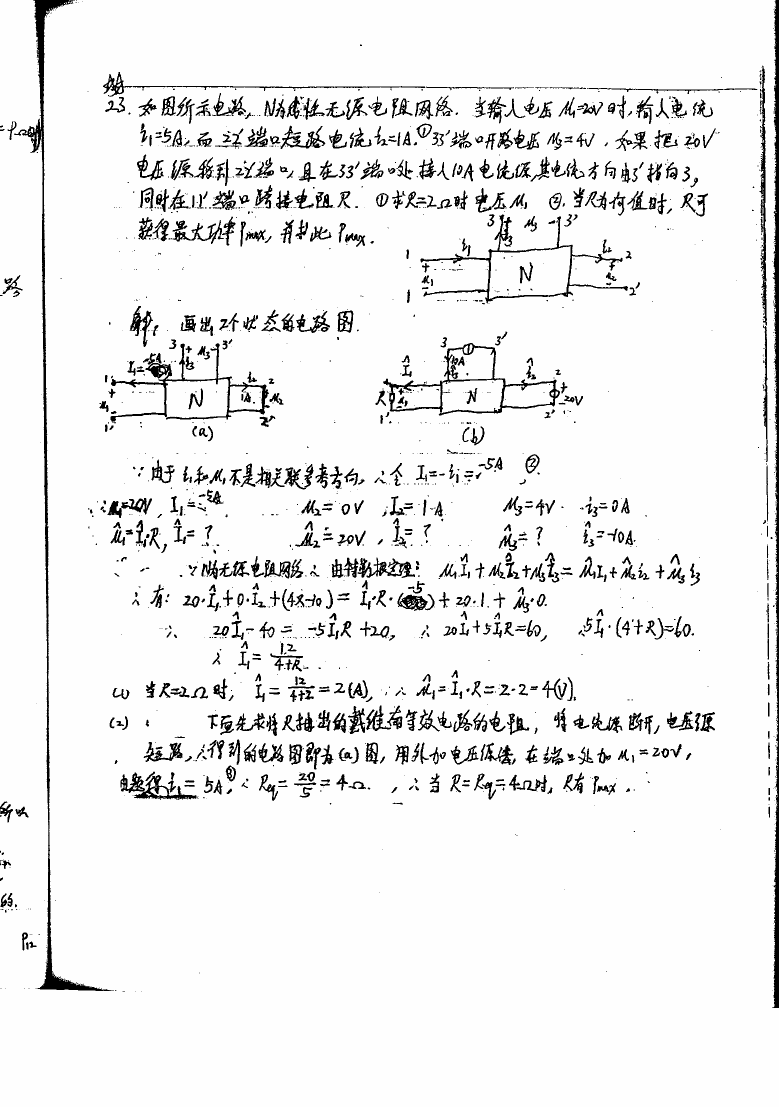 23. 如图所示电路, N为线性无源电阻网络. 当输入电压 u₁=20V 时, 输入电流
i₁=5A, 而 22' 端口短路电流 i₂=1A. ① 33' 端口开路电压 u₃=4V, 如果把 20V
电压源移到 22' 端口, 且在 33' 端口处接入 10A 电流源, 其电流方向由3'指向3,
同时在 11' 端口跨接电阻 R. ①求R=2Ω时电压 u₁ ②. 当R为何值时, R可
获得最大功率 Pmax, 并求此 Pmax.
3 + u₃ - 3'
i₃
1 i₁ i₂ 2
+ u₁ - N + u₂ -
1 2'
解: 画出2个状态的电路图.
3 + u₃ - 3'
I₁=-5A i₃ i₂
1 N 1A 2
u₁ u₂
1' 2'
(a)
3 3'
Î₁ 10A î₂
R û₁ N 2 + 20V
1' 2'
(b)
∵ 由于 i₁和u₁不是相关联参考方向, ∴ 令 I₁=-i₁=-5A ②
∴ u₁=20V, I₁=-5A u₂=0V, I₂=1A u₃=4V i₃=0A
û₁=Î₁R, Î₁=? û₂=20V, Î₂=? û₃=? î₃=-10A
∵ N为无源电阻网络 ∴ 由特勒根定理: u₁Î₁+u₂Î₂+u₃Î₃=û₁I₁+û₂i₂+û₃i₃
∴ 有: 20·Î₁+0·Î₂+(4×-10)=Î₁·R·(-5)+20·1+û₃·0.
∴ 20Î₁-40=-5Î₁R+20, ∴ 20Î₁+5Î₁R=60, 5Î₁·(4+R)=60.
∴ Î₁=12/(4+R)
(1) 当R=2Ω时, Î₁=12/(4+2)=2(A), ∴ û₁=Î₁·R=2·2=4(V).
(2) 下面先求将R抽出的戴维南等效电路的电阻, 将电流源断开, 电压源
短路, ∴得到的电路图即为(a)图, 用外加电压源法, 在端口处加 u₁=20V,
由题得 i₁=5A ③ ∴ Req=20/5=4Ω. , ∴ 当 R=Req=4Ω时, R有 Pmax.
所以
的.
P12